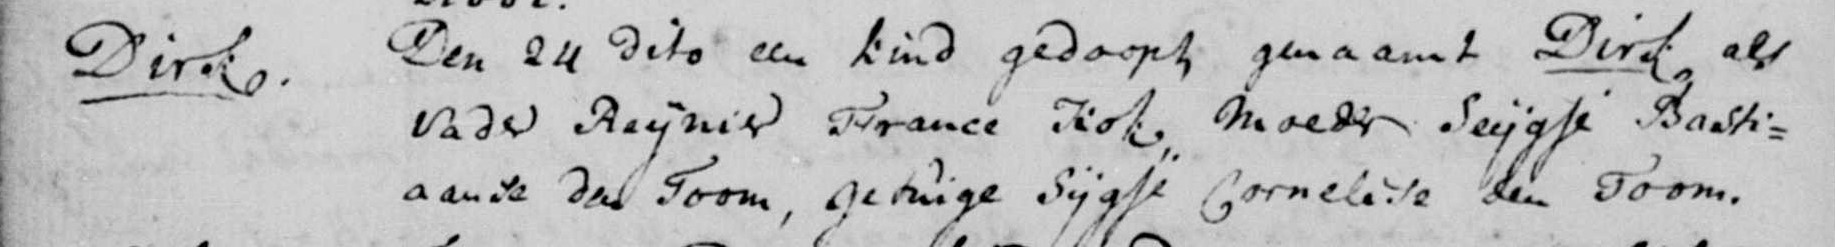 Dirk. Den 24 dito een kind gedoopt genaamt Dirk, als
vader Reÿnier France Kok, Moeder Seÿgje Basti=
aanse den Toom, getuige Sijgje Cornelisse den Toom.